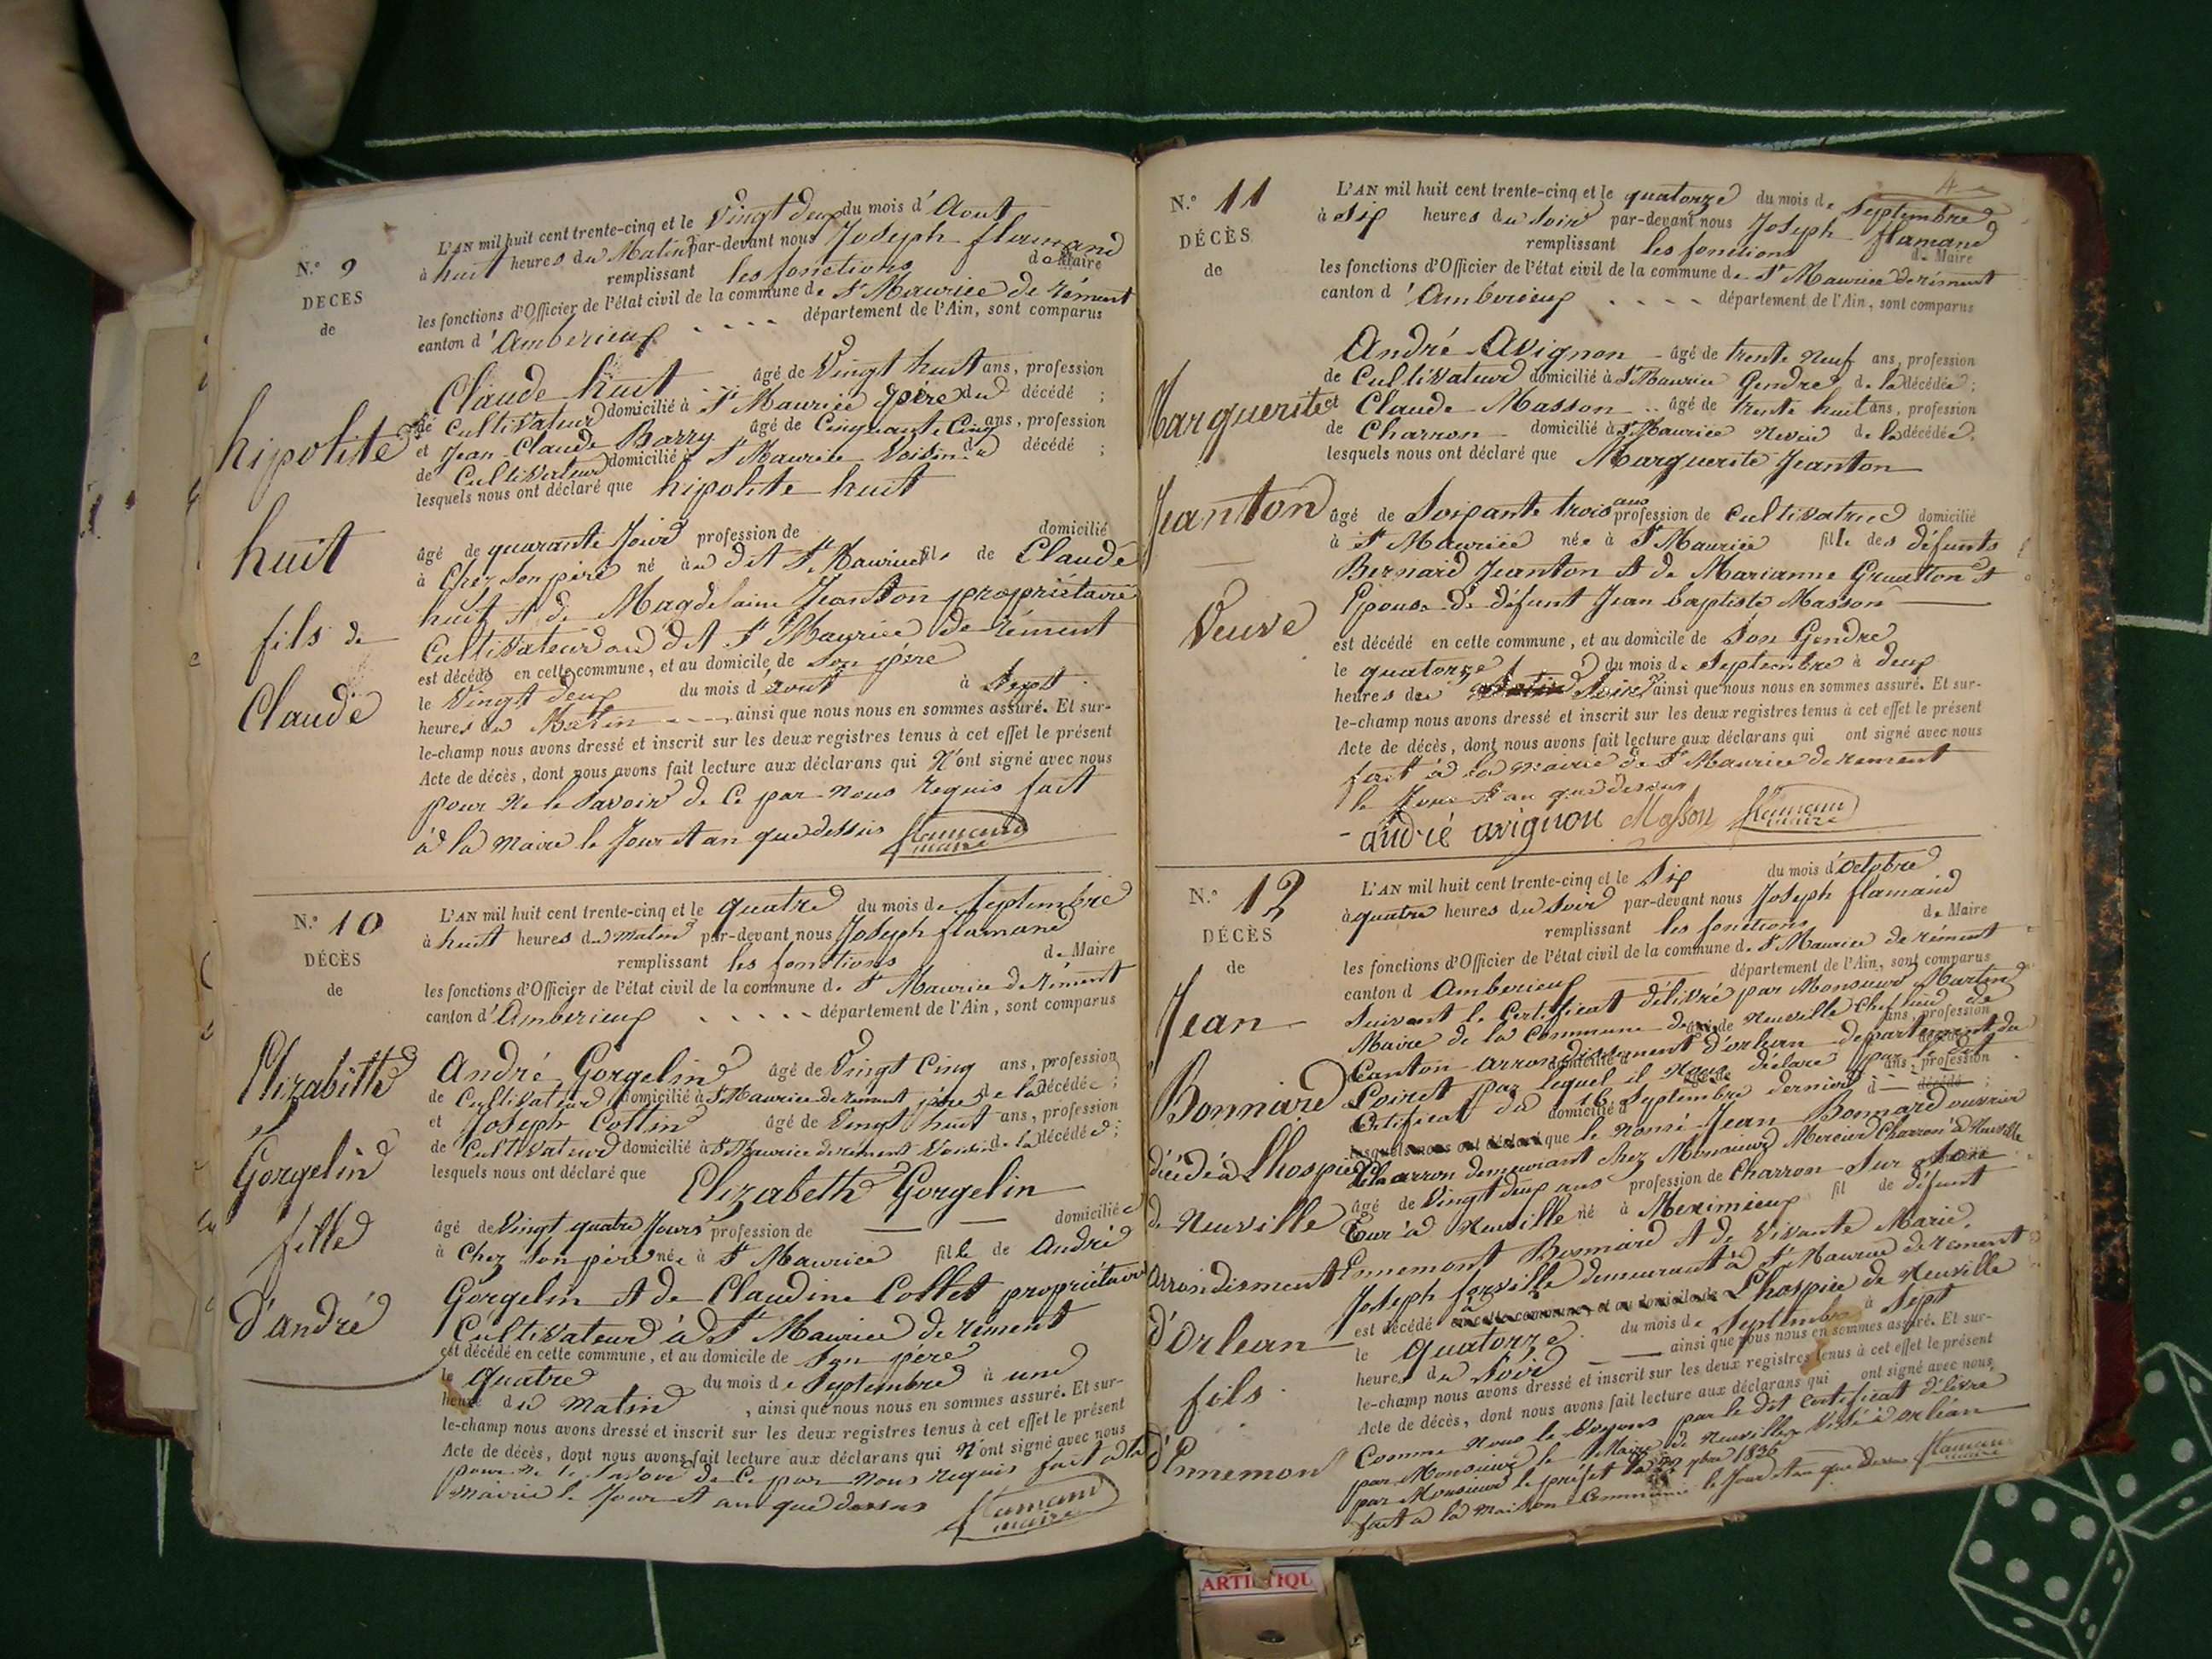 N.° 9
DÉCÈS
de
hipolite
huit
fils de
Claude
L'AN mil huit cent trente-cinq et le Vingt deux du mois d'Aout
à huit heures du Matin par-devant nous Joseph flamand
remplissant les fonctions de Maire
les fonctions d'Officier de l'état civil de la commune de St Maurice de rément
canton d'Amberieux département de l'Ain, sont comparus
Claude huit âgé de Vingt huit ans, profession
de Cultivateur domicilié à St Maurice père du décédé ;
et Jean Claude Barry âgé de Cinquante Cinq ans, profession
de Cultivateur domicilié à St Maurice Voisin du décédé ;
lesquels nous ont déclaré que hipolite huit
âgé de quarante Jour profession de domicilié
à Chez son père né au dit St Maurice fils de Claude
huit et de Magdelaine Jeanton propriétaire
Cultivateur au dit St Maurice de rément
est décédé en cette commune, et au domicile de son père
le Vingt deux du mois d'aout à Sept
heures du Matin ainsi que nous nous en sommes assuré. Et sur-
le-champ nous avons dressé et inscrit sur les deux registres tenus à cet effet le présent
Acte de décès, dont nous avons fait lecture aux déclarans qui N'ont signé avec nous
pour ne le savoir de ce par nous requis fait
à la Maire le Jour et an que dessus flamand
maire
N.° 10
DÉCÈS
de
Elizabeth
Gorgelin
fille
d'andré
L'AN mil huit cent trente-cinq et le quatre du mois de Septembre
à huit heures du matin par-devant nous Joseph flamand
remplissant les fonctions de Maire
les fonctions d'Officier de l'état civil de la commune de St Maurice de rément
canton d'Amberieux département de l'Ain, sont comparus
André Gorgelin âgé de Vingt Cinq ans, profession
de Cultivateur domicilié à St Maurice de rément père de la décédée ;
et Joseph Cottin âgé de Vingt huit ans, profession
de Cultivateur domicilié à St Maurice de rément Voisin de la décédée ;
lesquels nous ont déclaré que Elizabeth Gorgelin
âgé de Vingt quatre Jours profession de domiciliée
à Chez son père née à St Maurice fille de André
Gorgelin et de Claudine Collet propriétaire
Cultivateur à St Maurice de rément
est décédé en cette commune, et au domicile de son père
le quatre du mois de Septembre à une
heure du matin, ainsi que nous nous en sommes assuré. Et sur-
le-champ nous avons dressé et inscrit sur les deux registres tenus à cet effet le présent
Acte de décès, dont nous avons fait lecture aux déclarans qui N'ont signé avec nous
pour ne le savoir de ce par nous requis fait à la
mairie le Jour et an que dessus flamand
maire
4
N.° 11
DÉCÈS
de
Marguerite
Jeanton
Veuve
L'AN mil huit cent trente-cinq et le quatorze du mois de Septembre
à Six heures du Soir par-devant nous Joseph flamand
remplissant les fonctions de Maire
les fonctions d'Officier de l'état civil de la commune de St Maurice de rément
canton d'Amberieux département de l'Ain, sont comparus
André Avignon âgé de trente Neuf ans, profession
de Cultivateur domicilié à St Maurice Gendre de la décédée ;
et Claude Masson âgé de trente huit ans, profession
de Charron domicilié à St Maurice Neveu de la décédée,
lesquels nous ont déclaré que Marguerite Jeanton
âgé de Soixante trois ans profession de Cultivatrice domicilié
à St Maurice née à St Maurice fille des défunts
Bernard Jeanton et de Marianne et
Epouse de défunt Jean baptiste Masson
est décédé en cette commune, et au domicile de Son Gendre
le quatorze du mois de Septembre à deux
heures du Soir ainsi que nous nous en sommes assuré. Et sur-
le-champ nous avons dressé et inscrit sur les deux registres tenus à cet effet le présent
Acte de décès, dont nous avons fait lecture aux déclarans qui ont signé avec nous
fait à la mairie de St Maurice de rement
le Jour et an que dessus
andré avignon Masson flamand
maire
N.° 12
DÉCÈS
de
Jean
Bonnard
décédé à Lhospice
de Neuville
arrondisment
d'Orlean
fils
d'Ennemon
L'AN mil huit cent trente-cinq et le Six du mois d'Octobre
à quatre heures du Soir par-devant nous Joseph flamand
remplissant les fonctions de Maire
les fonctions d'Officier de l'état civil de la commune de St Maurice de rément
canton d Amberieux département de l'Ain, sont comparus
Suivant le Certificat délivré par Monsieur Martin
Maire de la Commune de Neuville Chef lieu de
Canton arrondissement d'orlean departement du
Loiret par lequel il Nous déclare par le dit
Certificat du 16 Septembre dernier
lesquels nous ont déclaré que le nomé Jean Bonnard ouvrier
Charron demeurant chez Monsieur Mercier Charron à Neuville
âgé de Vingt deux ans profession de Charron Sur Son
à Neuville né à Meximieux fil de défunt
Ennemont Bonnard et de Vivante Marie
Joseph forville demeurant à St Maurice de rement
est décédé à en cette commune, et au domicile de Lhospice de Neuville
le quatorze du mois de Septembre à Sept
heures du Soir ainsi que nous nous en sommes assuré. Et sur-
le-champ nous avons dressé et inscrit sur les deux registres tenus à cet effet le présent
Acte de décès, dont nous avons fait lecture aux déclarans qui ont signé avec nous
Comme nous le Voyons par le dit certificat délivré
par Monsieur le Maire de Neuville Visé à orléan
par Monsieur le préfet
fait à la maison Commune le Jour et an que dessus flamand
maire
ARTISTIQU